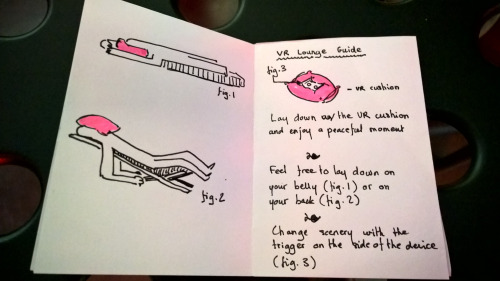 fig.1
fig.2
VR Lounge Guide
fig.3
- VR cushion
Lay down the VR cushion
and enjoy a peaceful moment
Feel free to lay down on
your belly (fig.1) or on
your back (fig.2)
Change scenery with the
trigger on the side of the device
(fig.3)